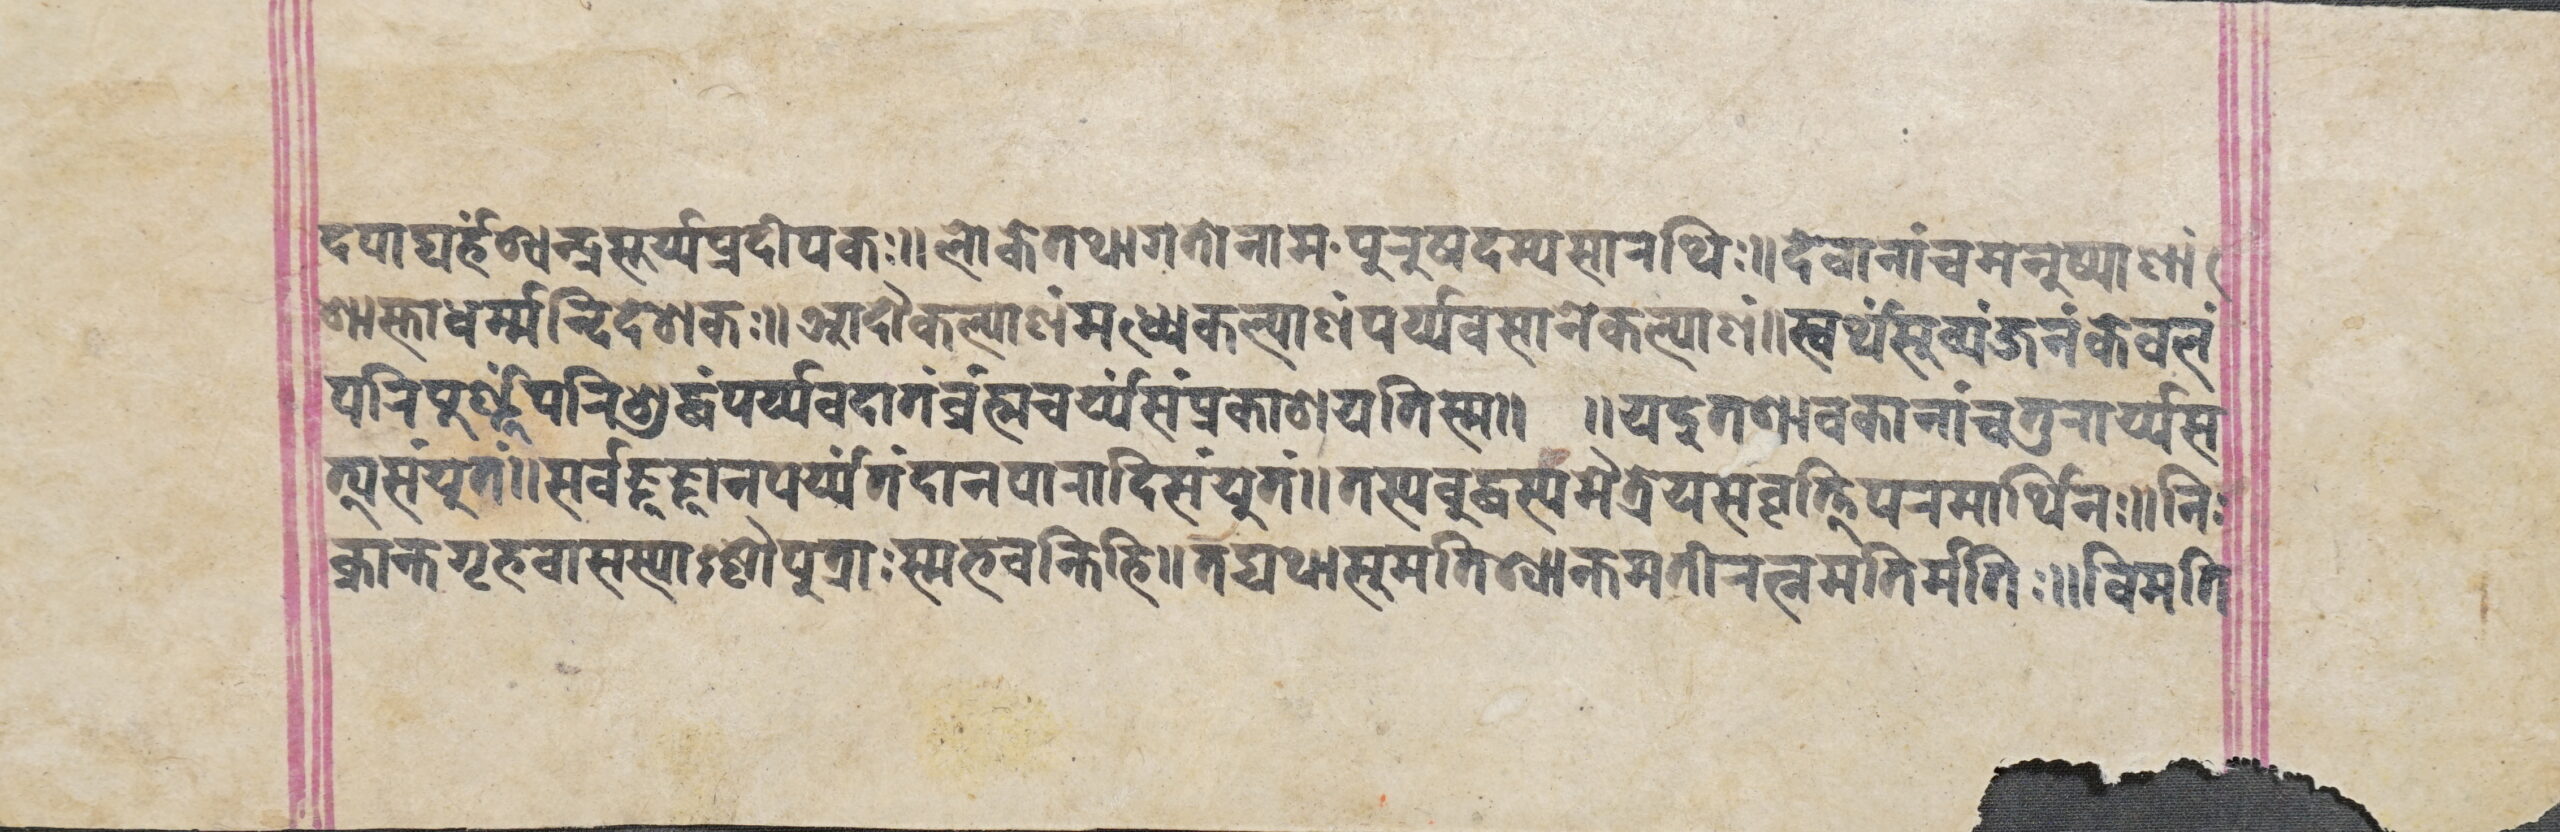 दपाद्यर्हंश्चन्द्रसूर्य्यप्रदीपकः॥लोकेतथागतोनाम पुरुषदम्यसारथिः॥देवानांचमनुष्याणां
शास्ताधर्म्मन्दिदेशकः॥आदौकल्याणंमध्येकल्याणंपर्य्यवसानेकल्याणं॥स्वर्थंसुव्यंजनंकेवलं
परिपूर्ण्णंपरिशुद्धंपर्य्यवदातंब्रंह्मचर्य्यंसंप्रकाशयतिस्म॥ ॥यदुतश्रावकानांचतुरार्य्यस
त्यसंयुतं॥सर्वज्ञज्ञानपर्य्यंतंदानपारादिसंयुतं॥तस्यबुद्धस्यमैत्रेयसंवृत्तिपरमार्थिनः॥निः
क्रान्तगृहवासस्याऽष्टौपुत्राःस्मभवन्तिहि॥तद्यथासुमतिश्चान्तमतीरत्नमतिर्मतिः॥विमति